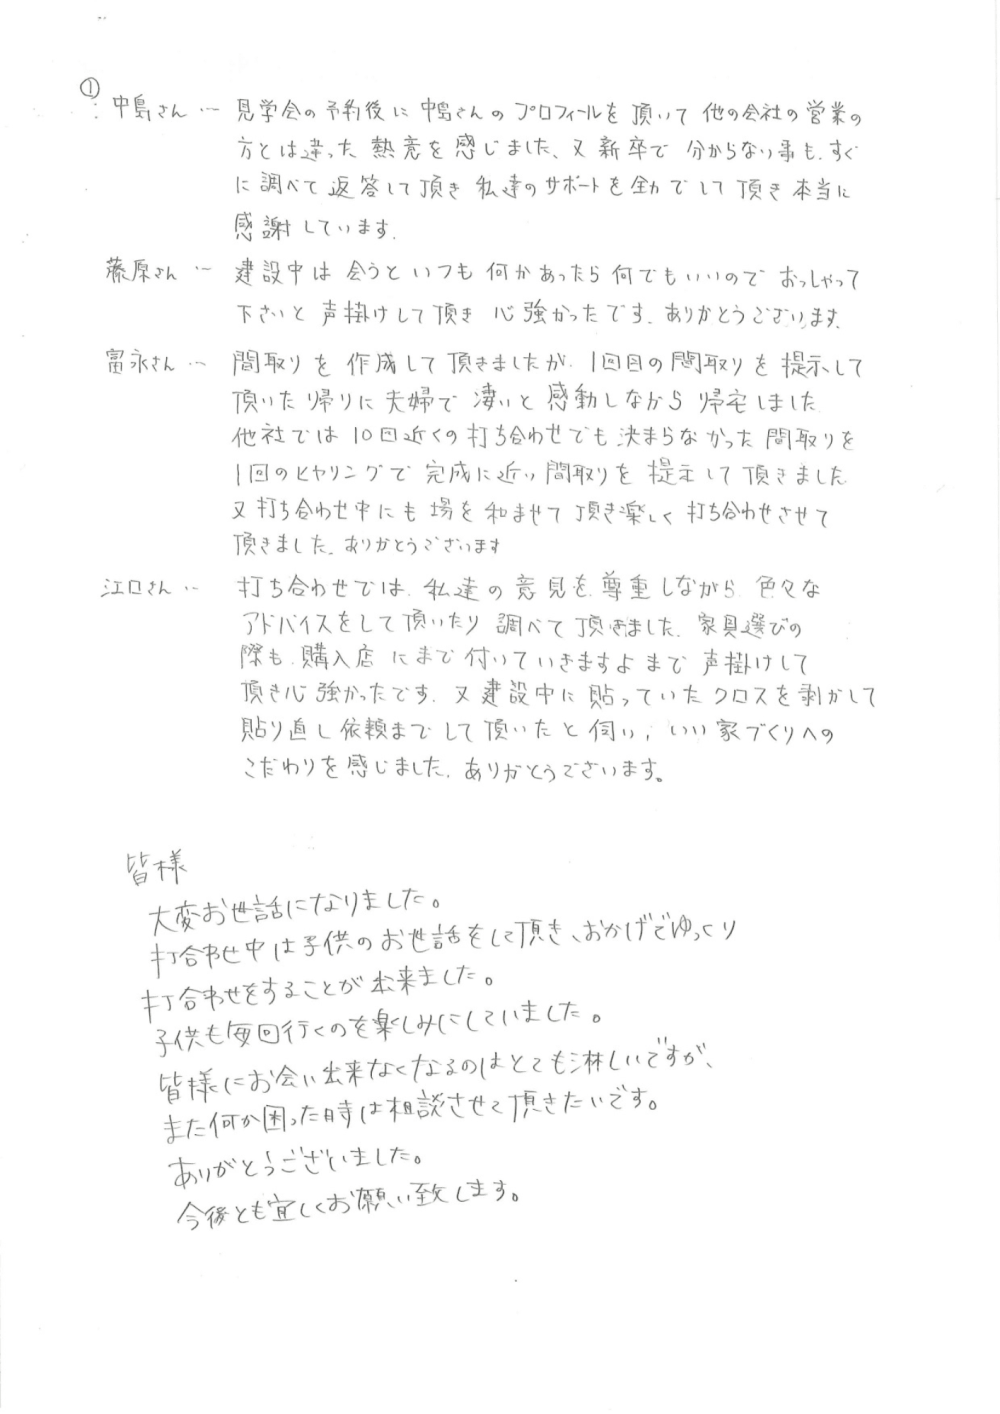 ①
中島さん … 見学会の予約後に中島さんのプロフィールを頂いて他の会社の営業の
方とは違った熱意を感じました、又新卒で分からない事も、すぐ
に調べて返答して頂き私達のサポートを全力でして頂き本当に
感謝しています.
藤原さん … 建設中は会うといつも何かあったら何でもいいのでおっしゃって
下さいと声掛けして頂き心強かったです. ありがとうございます.
富永さん … 間取りを作成して頂きましたが. 1回目の間取りを提示して
頂いた帰りに夫婦で凄いと感動しながら帰宅しました.
他社では10回近くの打ち合わせでも決まらなかった間取りを
1回のヒヤリングで完成に近い間取りを提示して頂きました.
又打ち合わせ中にも場を和ませて頂き楽しく打ち合わせさせて
頂きました. ありがとうございます
江口さん … 打ち合わせでは. 私達の意見を尊重しながら. 色々な
アドバイスをして頂いたり調べて頂きました. 家具選びの
際も. 購入店にまで付いていきますよまで声掛けして
頂き心強かったです. 又建設中に貼っていたクロスを剥がして
貼り直し依頼までして頂いたと伺い, いい家づくりへの
こだわりを感じました. ありがとうございます。
皆様
大変お世話になりました。
打合わせ中は子供のお世話をして頂き、おかげでゆっくり
打合わせをすることが出来ました。
子供も毎回行くのを楽しみにしていました。
皆様にお会い出来なくなるのはとても淋しいですが、
また何か困った時は相談させて頂きたいです。
ありがとうございました。
今後とも宜しくお願い致します。